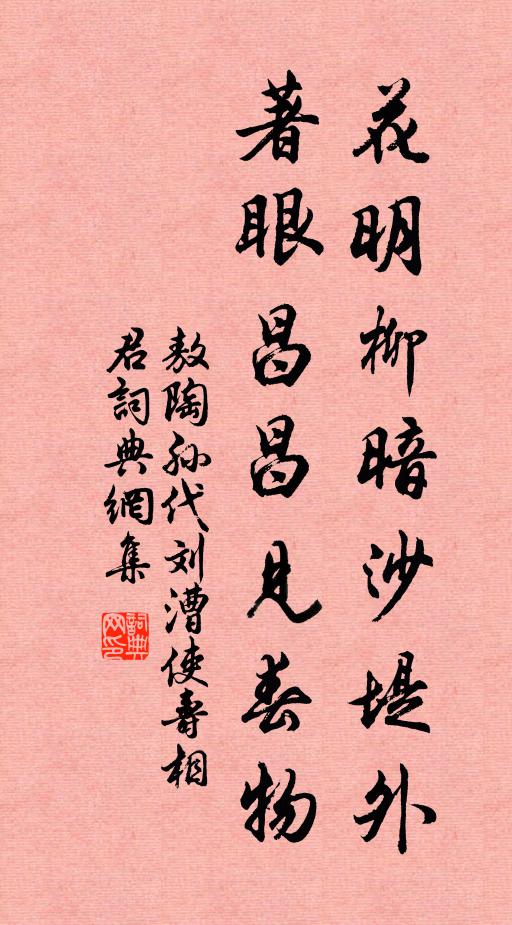 花明柳暗沙堤外
著眼昌昌見春物
敖陶孙代刘漕使壽相
君詞典網集
詞典网印